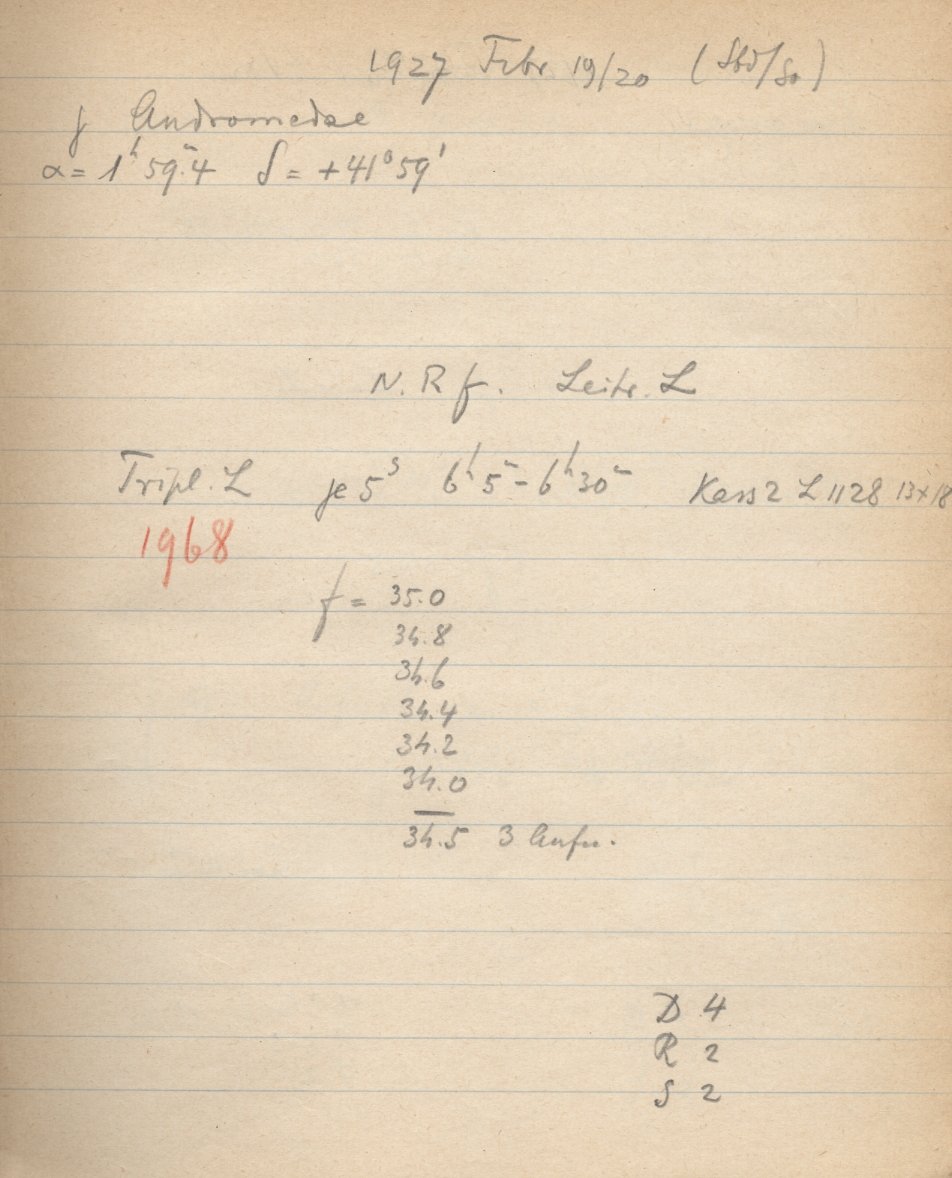 1927 Febr 19/20 (Sbd/So)
γ Andromedae
α = 1ʰ 59ᵐ.4 δ = +41° 59'
N. R f. Leitr. L
Tripl. L je 5ˢ 6ʰ 5ᵐ - 6ʰ 30ᵐ Kass 2 L 1128 13×18
1968
f = 35.0
34.8
34.6
34.4
34.2
34.0
34.5 3 Aufn.
D 4
R 2
S 2